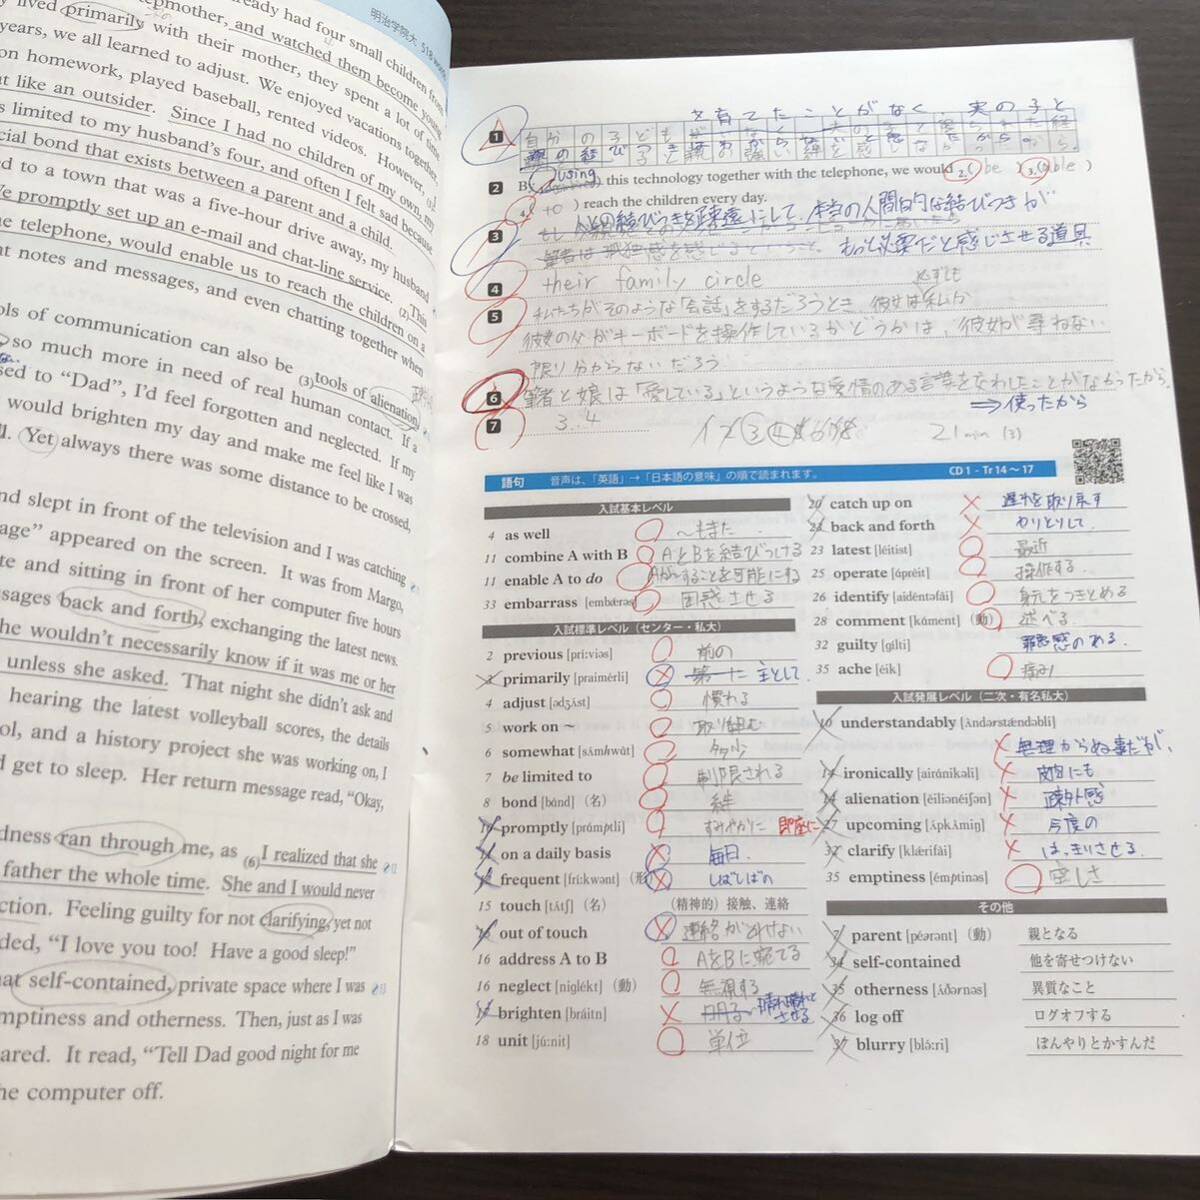 明治学院大 518 words
already had four small children from
stepmother, and watched them become young
lived primarily with their mother, they spent a lot of time
years, we all learned to adjust. We enjoyed vacations together,
on homework, played baseball, rented videos. However, (1)I
like an outsider. Since I had no children of my own, my
limited to my husband's four, and often I felt sad because
cial bond that exists between a parent and a child.
to a town that was a five-hour drive away, my husband
We promptly set up an e-mail and chat-line service. (2)This
the telephone, would enable us to reach the children on a
notes and messages, and even chatting together when
ols of communication can also be (3)tools of alienation,
so much more in need of real human contact. If a
sed to "Dad", I'd feel forgotten and neglected. If my
would brighten my day and make me feel like I was
Yet always there was some distance to be crossed,
nd slept in front of the television and I was catching
age" appeared on the screen. It was from Margo,
te and sitting in front of her computer five hours
ssages back and forth, exchanging the latest news.
he wouldn't necessarily know if it was me or her
unless she asked. That night she didn't ask and
hearing the latest volleyball scores, the details
ol, and a history project she was working on, I
get to sleep. Her return message read, "Okay,
dness ran through me, as (6)I realized that she
father the whole time. She and I would never
ction. Feeling guilty for not clarifying, yet not
ded, "I love you too! Have a good sleep!"
at self-contained, private space where I was
mptiness and otherness. Then, just as I was
ared. It read, "Tell Dad good night for me
he computer off.
を育てたことがなく 実の子と
1 自分の子ども
2 B using this technology together with the telephone, we would 2.( be ) 3.( able )
4. ( to ) reach the children every day.
3 人との結びつきを疎遠にして、本当の人間的な結びつきが
筆者は孤独感を感じるということ。 もっと必要だと感じさせる道具
4 their family circle
必ずしも
5 私たちがそのような「会話」をするだろうとき、彼女は私か
彼女の父がキーボードを操作しているかどうかは、彼女が尋ねない
限り分からないだろう
6 筆者と娘は「愛している」というような愛情のある言葉を交わしたことがなかったから。
⇒使ったから
7 3..4
21min (3)
語句 音声は、「英語」→「日本語の意味」の順で読まれます。 CD1 - Tr 14~17
入試基本レベル
4 as well ～もまた
11 combine A with B AとBを結びつける
11 enable A to do Aが～することを可能にする
33 embarrass 困惑させる
入試標準レベル(センター・私大)
2 previous [príːviəs] 前の
3 primarily [praimérli] 第一に 主として
4 adjust [ədʒʌ́st] 慣れる
5 work on ~ 取り組む
6 somewhat [sʌ́mhwʌ̀t] 多少
7 be limited to 制限される
8 bond [bɑ́nd] (名) 絆
10 promptly [prɑ́mptli] すみやかに 即座に
11 on a daily basis 毎日.
12 frequent [fríːkwənt] (形) しばしばの
15 touch [tʌ́tʃ] (名) (精神的) 接触、連絡
15 out of touch 連絡がとれない
16 address A to B AをBに宛てる
16 neglect [niglékt] (動) 無視する
17 brighten [bráitn] 晴れ晴れとさせる
18 unit [júːnit] 単位
20 catch up on 遅れを取り戻す
22 back and forth やりとりして.
23 latest [léitist] 最近
25 operate [ɑ́pərèit] 操作する.
26 identify [aidéntəfái] 身元をつきとめる
28 comment [kɑ́ment] (動) 述べる
32 guilty [gílti] 罪悪感のある.
35 ache [éik] 痛み
入試発展レベル(二次・有名私大)
10 understandably [ʌ̀ndərstǽndəbli]
無理からぬ事だが、
14 ironically [airánikəli] 皮肉にも
14 alienation [èiliənéiʃən] 疎外感
27 upcoming [ʌ́pkʌ̀miŋ] 今度の
32 clarify [klǽrifài] はっきりさせる.
35 emptiness [émptinəs] 空しさ
その他
2 parent [péərənt] (動) 親となる
34 self-contained 他を寄せつけない
35 otherness [ʌ́ðərnəs] 異質なこと
36 log off ログオフする
37 blurry [blə́ːri] ぼんやりとかすんだ